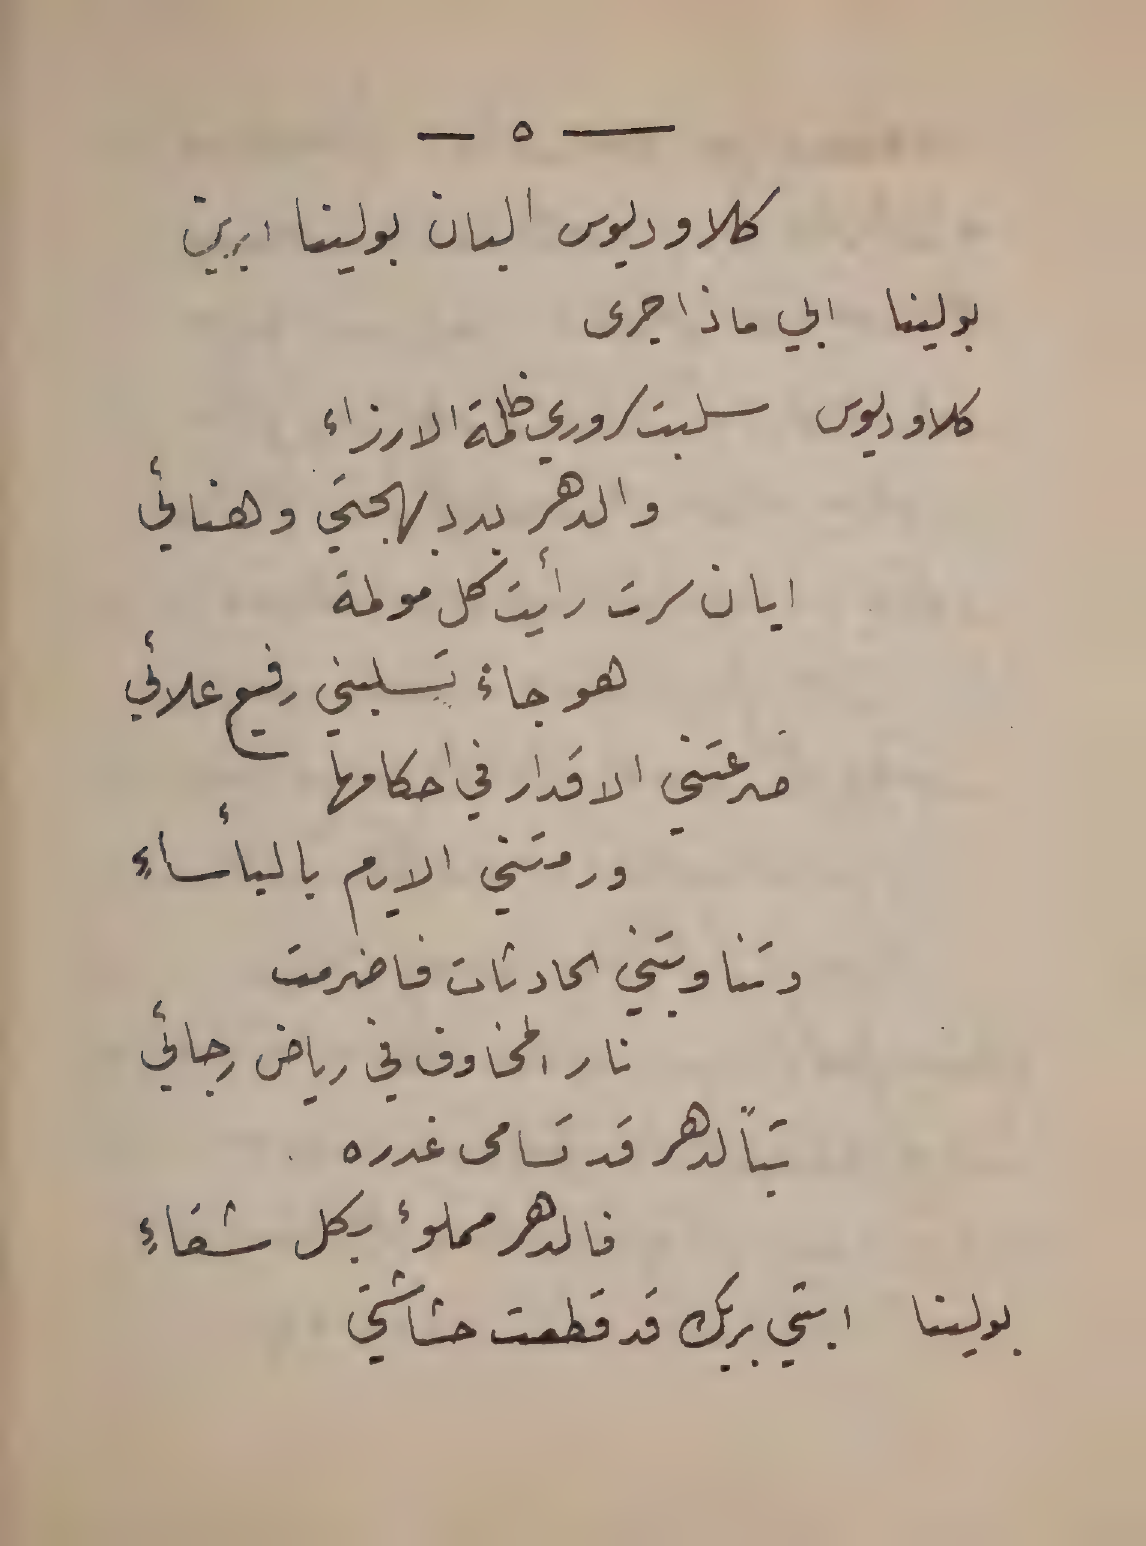 — ٥ —
كلاوديوس البان بولينا ايرين
بولينا ابي ماذا جرى
كلاوديوس سلبت سروري ظلمة الارزاء
والدهر بدد بهجتي وهنائي
ايان سرت رأيت كل مولمة
هو جاءَ تسلبني رفيع علائي
صرعتني الاقدار في احكامها
ورمتني الايام بالبأساءِ
وتناوبتني الحادثات فاضرمت
نار المخاوف في رياض رجائي
تبًا لدهر قد تسامى غدره
فالدهر مملوءُ بكل شقاءِ
بولينا ابتي بربك قد قطعت حشاشتي